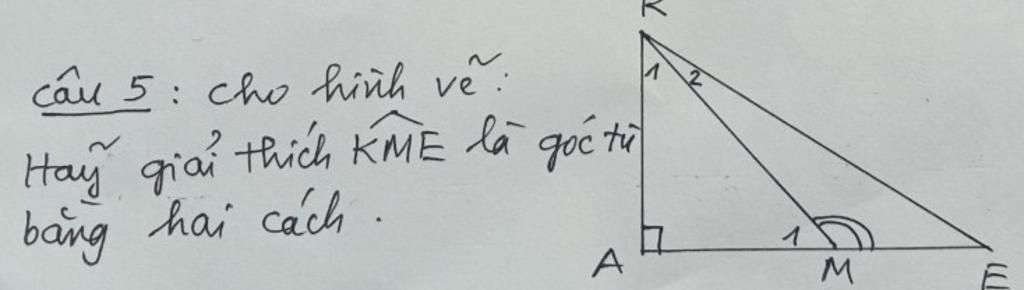 Câu 5: cho hình vẽ.
Hãy giải thích KME là góc tù
bằng hai cách.
K
1 2
A 1 M E